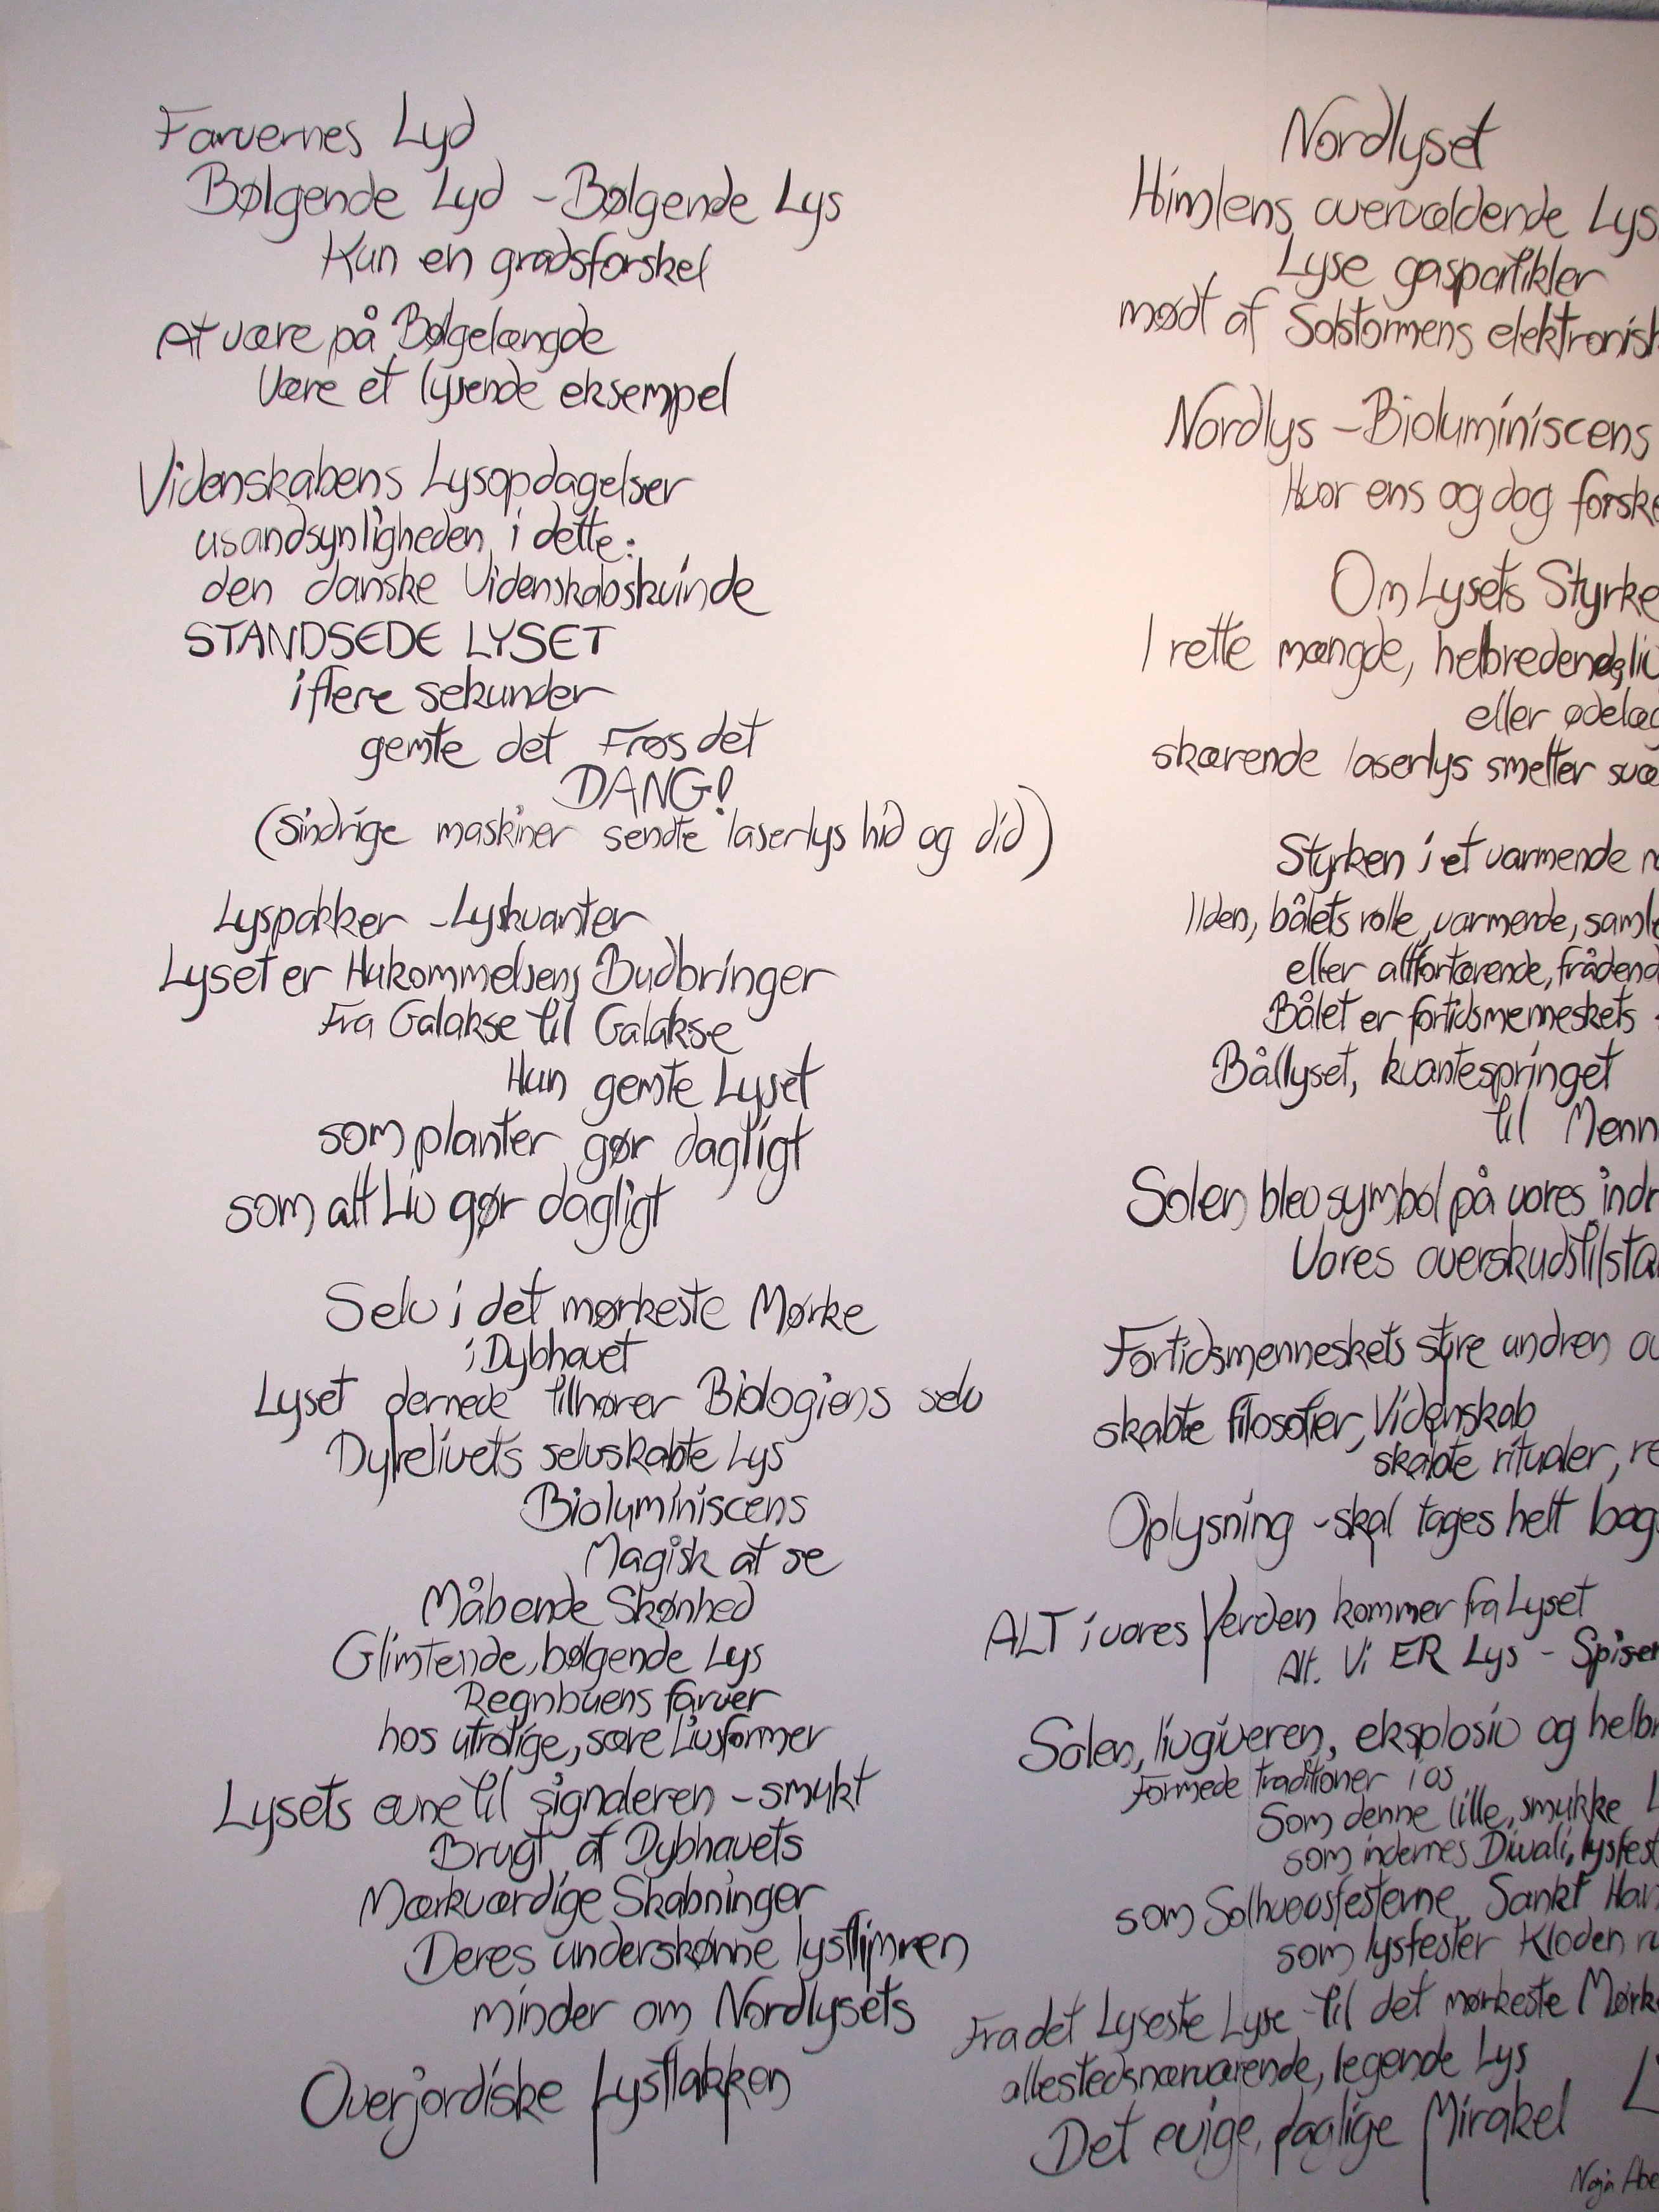 Farvernes Lyd
Bølgende Lyd – Bølgende Lys
Kun en gradsforskel
At være på Bølgelængde
Være et lysende eksempel
Videnskabens Lysopdagelser
usandsynligheden i dette:
den danske Videnskabskvinde
STANDSEDE LYSET
i flere sekunder
gemte det Frøs det
DANG!
(Sindrige maskiner sendte laserlys hid og did)
Lyspakker – Lyskvanter
Lyset er Hukommelsens Budbringer
Fra Galakse til Galakse
Hun gemte Lyset
som planter gør dagligt
som alt Liv gør dagligt
Selv i det mørkeste Mørke
i Dybhavet
Lyset dernede tilhører Biologiens selv
Dyrelivets selvskabte Lys
Bioluminiscens
Magisk at se
Måbende Skønhed
Glimtende, bølgende Lys
Regnbuens farver
hos utrolige, sære Livsformer
Lysets evne til signaleren – smukt
Brugt af Dybhavets
Mærkværdige Skabninger
Deres underskønne lysflimren
minder om Nordlysets
Overjordiske Lysflakken
Nordlyset
Himlens overvældende Lys
Lyse gaspartikler
mødt af Solstormens elektronisk
Nordlys – Bioluminiscens
Hvor ens og dog forske
Om Lysets Styrke
I rette mængde, helbredende, liv
eller ødelæg
skærende laserlys smelter svæ
Styrken i et varmende
Ilden, bålets rolle, varmende, samle
eller altfortærende, frådend
Bålet er fortidsmenneskets
Bållyset, kvantespringet
til Menn
Solen blev symbol på vores indr
Vores overskudstilsta
Fortidsmenneskets styre undren ov
skabte filosofier, Videnskab
skabte ritualer, re
Oplysning – skal tages helt bog
ALT i vores Verden kommer fra Lyset
Alt. Vi ER Lys – Spiser
Solen, livgiveren, eksplosiv og helbr
Formede traditioner i os
Som denne lille, smukke L
som indernes Diwali, lysfest
som Solhvervsfesterne, Sankt Han
som lysfester Kloden ru
Fra det Lyseste Lyse til det mørkeste Mørk
allestedsnærværende, legende Lys
Det evige, daglige Mirakel